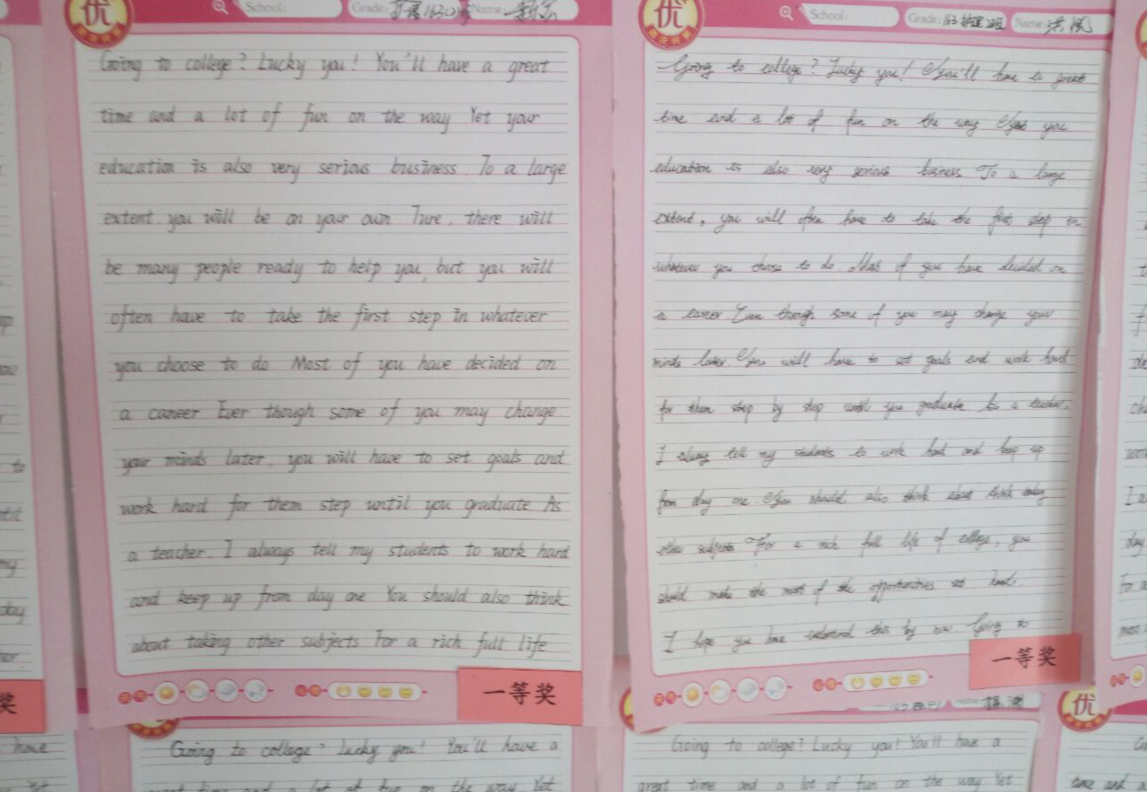 优
School:
Grade:
Name:
Going to college? Lucky you! You'll have a great
time and a lot of fun on the way Yet your
education is also very serious business. To a large
extent you will be on your own Ture, there will
be many people ready to help you, but you will
often have to take the first step in whatever
you choose to do Most of you have decided on
a career Ever though some of you may change
your minds later, you will have to set goals and
work hard for them step until you graduate. As
a teacher. I always tell my students to work hard
and keep up from day one You should also think
about taking other subjects For a rich full life
一等奖
优
School:
Grade:
Name:
Going to college? Lucky you! You'll have a great
time and a lot of fun on the way you
education is also very serious business. To a large
extent, you will often have to take the first step in
whatever you to do. Most of you have decided on
a career Even though some of you may change your
minds later. You will have to set goals and work hard
for them step by step until you graduate As a teacher.
I always tell my students to work hard and keep up
from day one You should also think about
other subjects For a rich full life of college, you
should make the most of the opportunities at hand.
I hope you have understand this by now Going to
一等奖
Going to college? Lucky you! You'll have a
great time and a lot of fun on the way Yet
优
Going to college? Lucky you! You'll have a
great time and a lot of fun on the way Yet
优
time and a